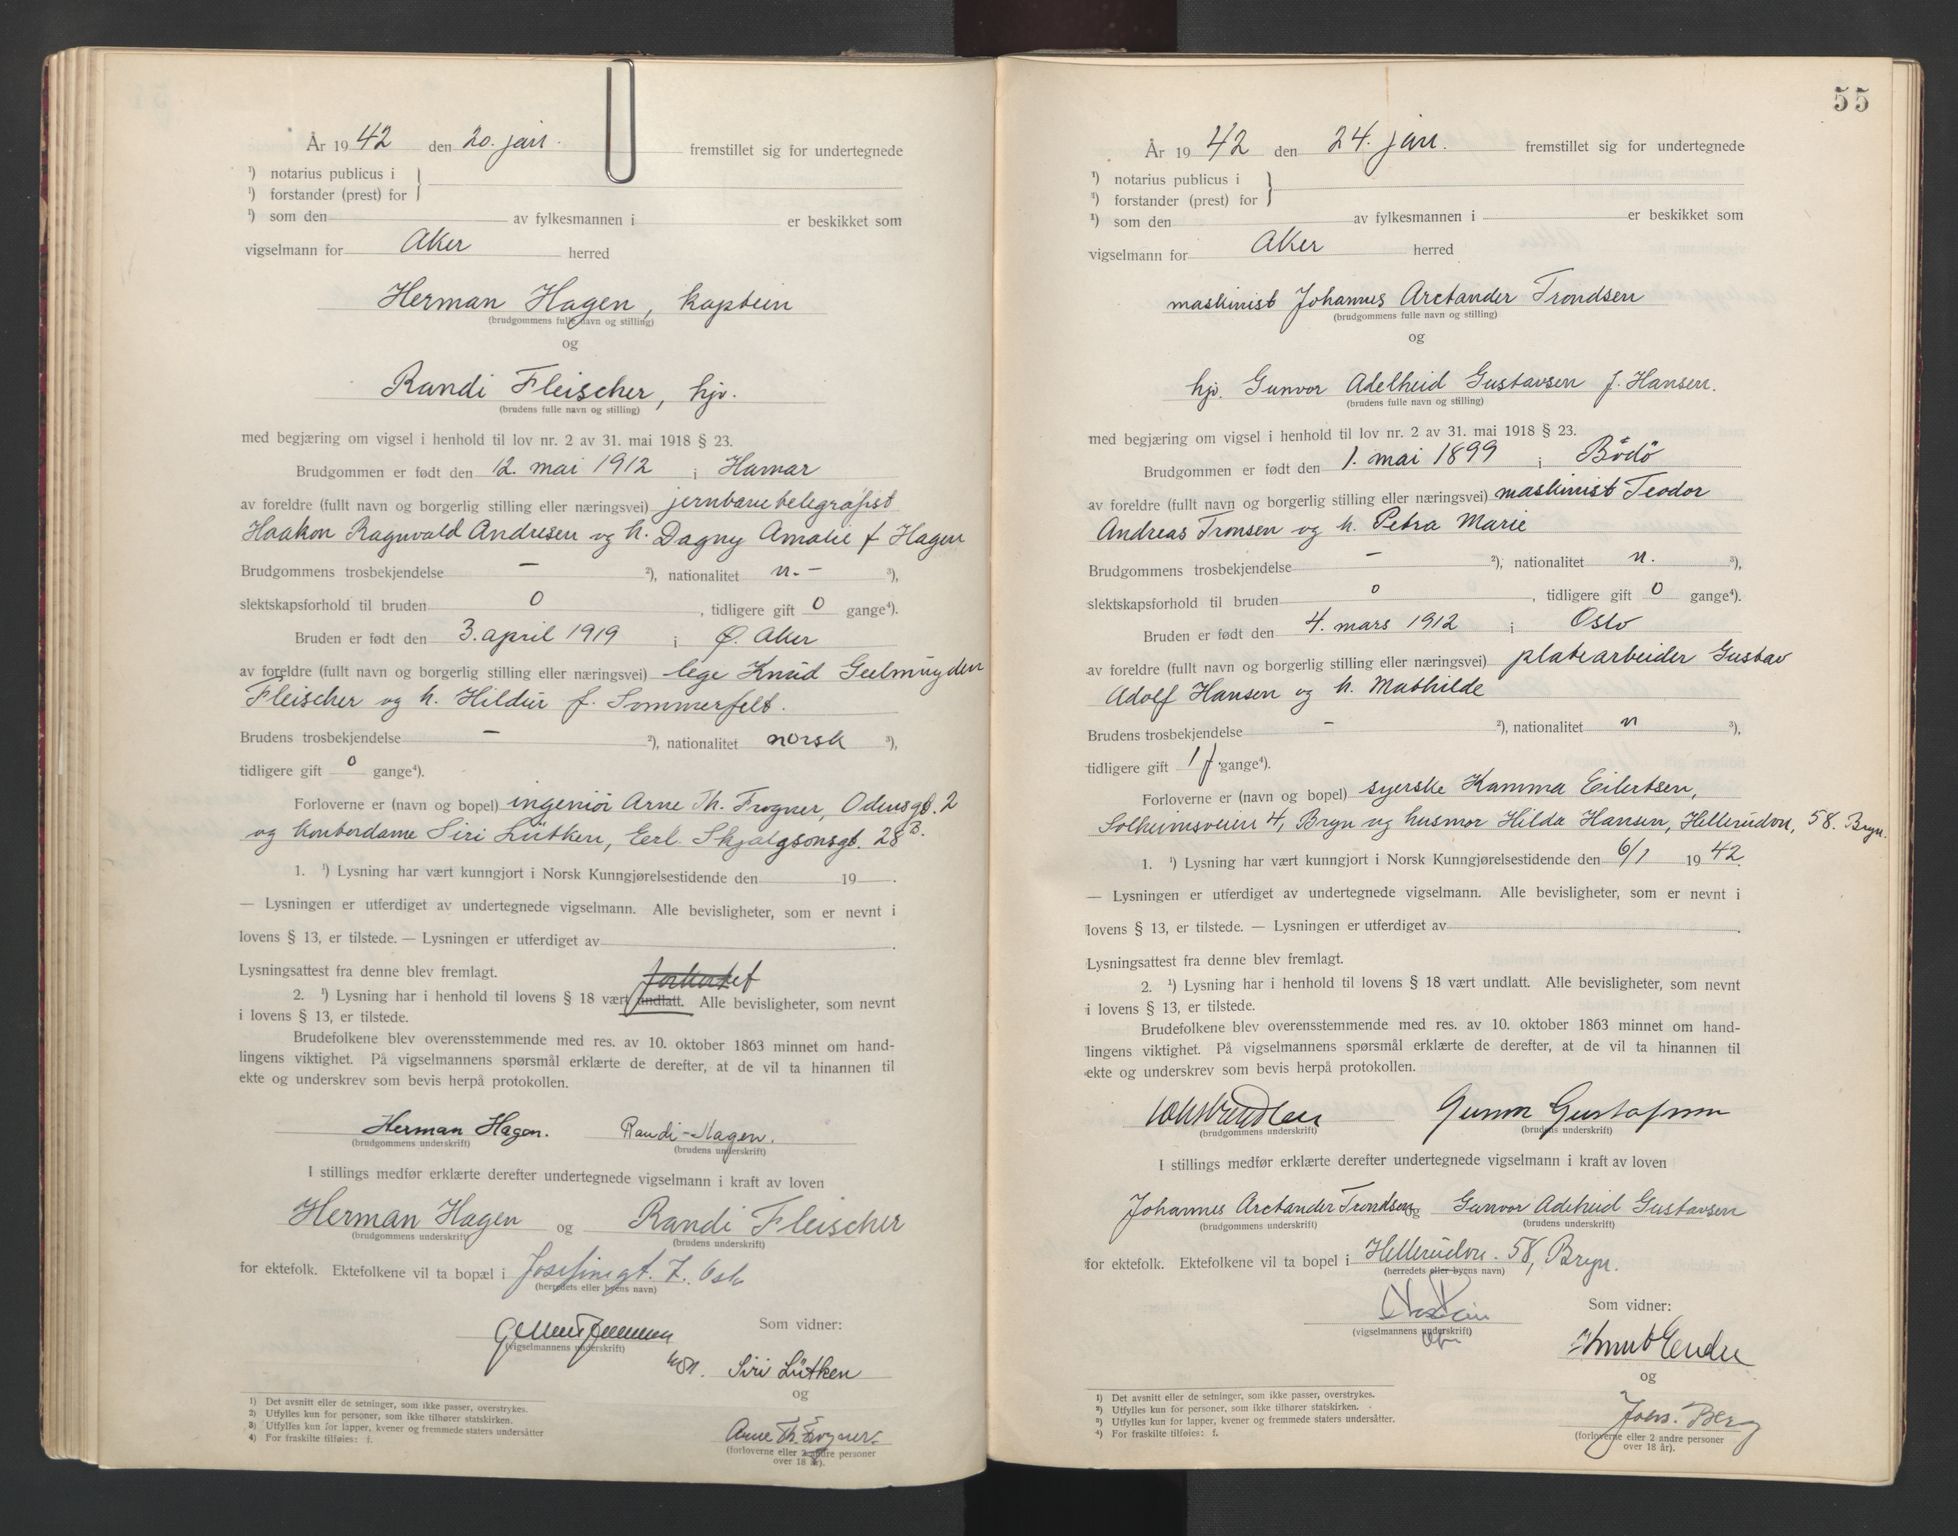 År 1942 den 20. jan. fremstillet sig for undertegnede
¹) notarius publicus i
¹) forstander (prest) for
¹) som den av fylkesmannen i er beskikket som
vigselmann for Aker herred
Herman Hagen, kaptein
(brudgommens fulle navn og stilling)
og
Randi Fleischer, hjv.
(brudens fulle navn og stilling)
med begjæring om vigsel i henhold til lov nr. 2 av 31. mai 1918 § 23.
Brudgommen er født den 12. mai 1912 i Hamar
av foreldre (fullt navn og borgerlig stilling eller næringsvei) jernbanetelegrafist
Haakon Ragnvald Andresen og h. Dagny Amalie f Hagen
Brudgommens trosbekjendelse - ²), nationalitet n. - ³),
slektskapsforhold til bruden 0, tidligere gift 0 gange⁴).
Bruden er født den 3. april 1919 i Ø. Aker
av foreldre (fullt navn og borgerlig stilling eller næringsvei) lege Knud Geelmuyden
Fleischer og h. Hildur f. Sommerfelt.
Brudens trosbekjendelse - ²), nationalitet norsk ³),
tidligere gift 0 gange⁴).
Forloverne er (navn og bopel) ingeniör Arne Th. Frogner, Odinsgt. 2
og kontordame Siri Lütken, Erl. Skjalgsonsgt. 28 B.
1. ¹) Lysning har vært kunngjort i Norsk Kunngjørelsestidende den 19 .
— Lysningen er utferdiget av undertegnede vigselmann. Alle bevisligheter, som er nevnt i
lovens § 13, er tilstede. — Lysningen er utferdiget av .
Lysningsattest fra denne blev fremlagt.
forkortet
2. ¹) Lysning har i henhold til lovens § 18 vært undlatt. Alle bevisligheter, som nevnt
i lovens § 13, er tilstede.
Brudefolkene blev overensstemmende med res. av 10. oktober 1863 minnet om hand-
lingens viktighet. På vigselmannens spørsmål erklærte de derefter, at de vil ta hinannen til
ekte og underskrev som bevis herpå protokollen.
Herman Hagen. Randi-Hagen.
(brudgommens underskrift) (brudens underskrift)
I stillings medfør erklærte derefter undertegnede vigselmann i kraft av loven
Herman Hagen og Randi Fleischer
(brudgommens underskrift) (brudens underskrift)
for ektefolk. Ektefolkene vil ta bopæl i Josefinegt. 7. Oslo
(herredets eller byens navn)
Som vidner:
(vigselmannens underskrift)
Siri Lütken
og
Arne Th. Frogner.
(forloverne eller 2 andre personer
over 18 år).
¹) Det avsnitt eller de setninger, som ikke passer, overstrykes.
²) Utfylles kun for personer, som ikke tilhører statskirken.
³) Utfylles kun for lapper, kvener og fremmede staters undersåtter
⁴) For fraskilte tilføies: f.
55
År 1942 den 24. jan. fremstillet sig for undertegnede
¹) notarius publicus i
¹) forstander (prest) for
¹) som den av fylkesmannen i er beskikket som
vigselmann for Aker herred
maskinist Johannes Arctander Trondsen
(brudgommens fulle navn og stilling)
og
hjv. Gunvor Adelheid Gustavsen f. Hansen.
(brudens fulle navn og stilling)
med begjæring om vigsel i henhold til lov nr. 2 av 31. mai 1918 § 23.
Brudgommen er født den 1. mai 1899 i Bodö
av foreldre (fullt navn og borgerlig stilling eller næringsvei) maskinist Teodor
Andreas Tronsen og h. Petra Marie
Brudgommens trosbekjendelse - ²), nationalitet n. ³),
slektskapsforhold til bruden 0, tidligere gift 0 gange⁴).
Bruden er født den 4. mars 1912 i Oslo
av foreldre (fullt navn og borgerlig stilling eller næringsvei) platearbeider Gustav
Adolf Hansen og h. Mathilde
Brudens trosbekjendelse - ²), nationalitet n ³),
tidligere gift 1 f. gange⁴).
Forloverne er (navn og bopel) syerske Kamma Eilertsen,
Solheimsveien 4, Bryn og husmor Hilda Hansen, Hellerudvn, 58. Bryn.
1. ¹) Lysning har vært kunngjort i Norsk Kunngjørelsestidende den 6/1 1942.
— Lysningen er utferdiget av undertegnede vigselmann. Alle bevisligheter, som er nevnt i
lovens § 13, er tilstede. — Lysningen er utferdiget av .
Lysningsattest fra denne blev fremlagt.
2. ¹) Lysning har i henhold til lovens § 18 vært undlatt. Alle bevisligheter, som nevnt
i lovens § 13, er tilstede.
Brudefolkene blev overensstemmende med res. av 10. oktober 1863 minnet om hand-
lingens viktighet. På vigselmannens spørsmål erklærte de derefter, at de vil ta hinannen til
ekte og underskrev som bevis herpå protokollen.
Gunvor Gustafsen
(brudgommens underskrift) (brudens underskrift)
I stillings medfør erklærte derefter undertegnede vigselmann i kraft av loven
Johannes Arctander Trondsen og Gunvor Adelheid Gustavsen
(brudgommens underskrift) (brudens underskrift)
for ektefolk. Ektefolkene vil ta bopel i Hellerudvn. 58, Bryn.
(herredets eller byens navn)
Som vidner:
(vigselmannens underskrift)
og
Berg
(forloverne eller 2 andre personer
over 18 år).
¹) Det avsnitt eller de setninger, som ikke passer, overstrykes.
²) Utfylles kun for personer, som ikke tilhører statskirken.
³) Utfylles kun for lapper, kvener og fremmede staters undersåtter.
⁴) For fraskilte tilføies: f.